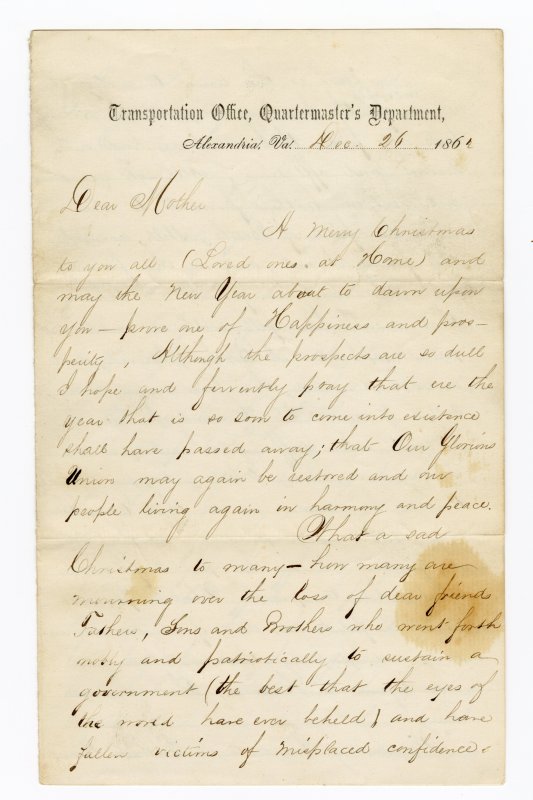 Transportation Office, Quartermaster's Department,
Alexandria, Va. Dec. 26 1862
Dear Mother
A Merry Christmas
to you all (Loved ones at Home) and
may the New Year about to dawn upon
you — prove one of Happiness and pros-
perity, Although the prospects are so dull
I hope and fervently pray that ere the
year that is so soon to come into existence
shall have passed away; that Our Glorious
Union may again be restored and our
people living again in harmony and peace.
What a sad
Christmas to many — how many are
mourning over the loss of dear friends
Fathers, Sons and Brothers who went forth
nobly and patriotically to sustain a
government (the best that the eyes of
the world have ever beheld) and have
fallen victims of misplaced confidence.